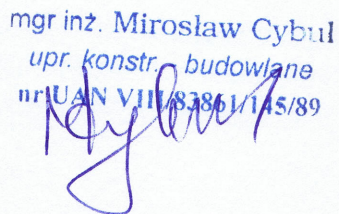 mgr inż. Mirosław Cybul
upr. konstr. - budowlane
nr UAN VIII/83861/145/89